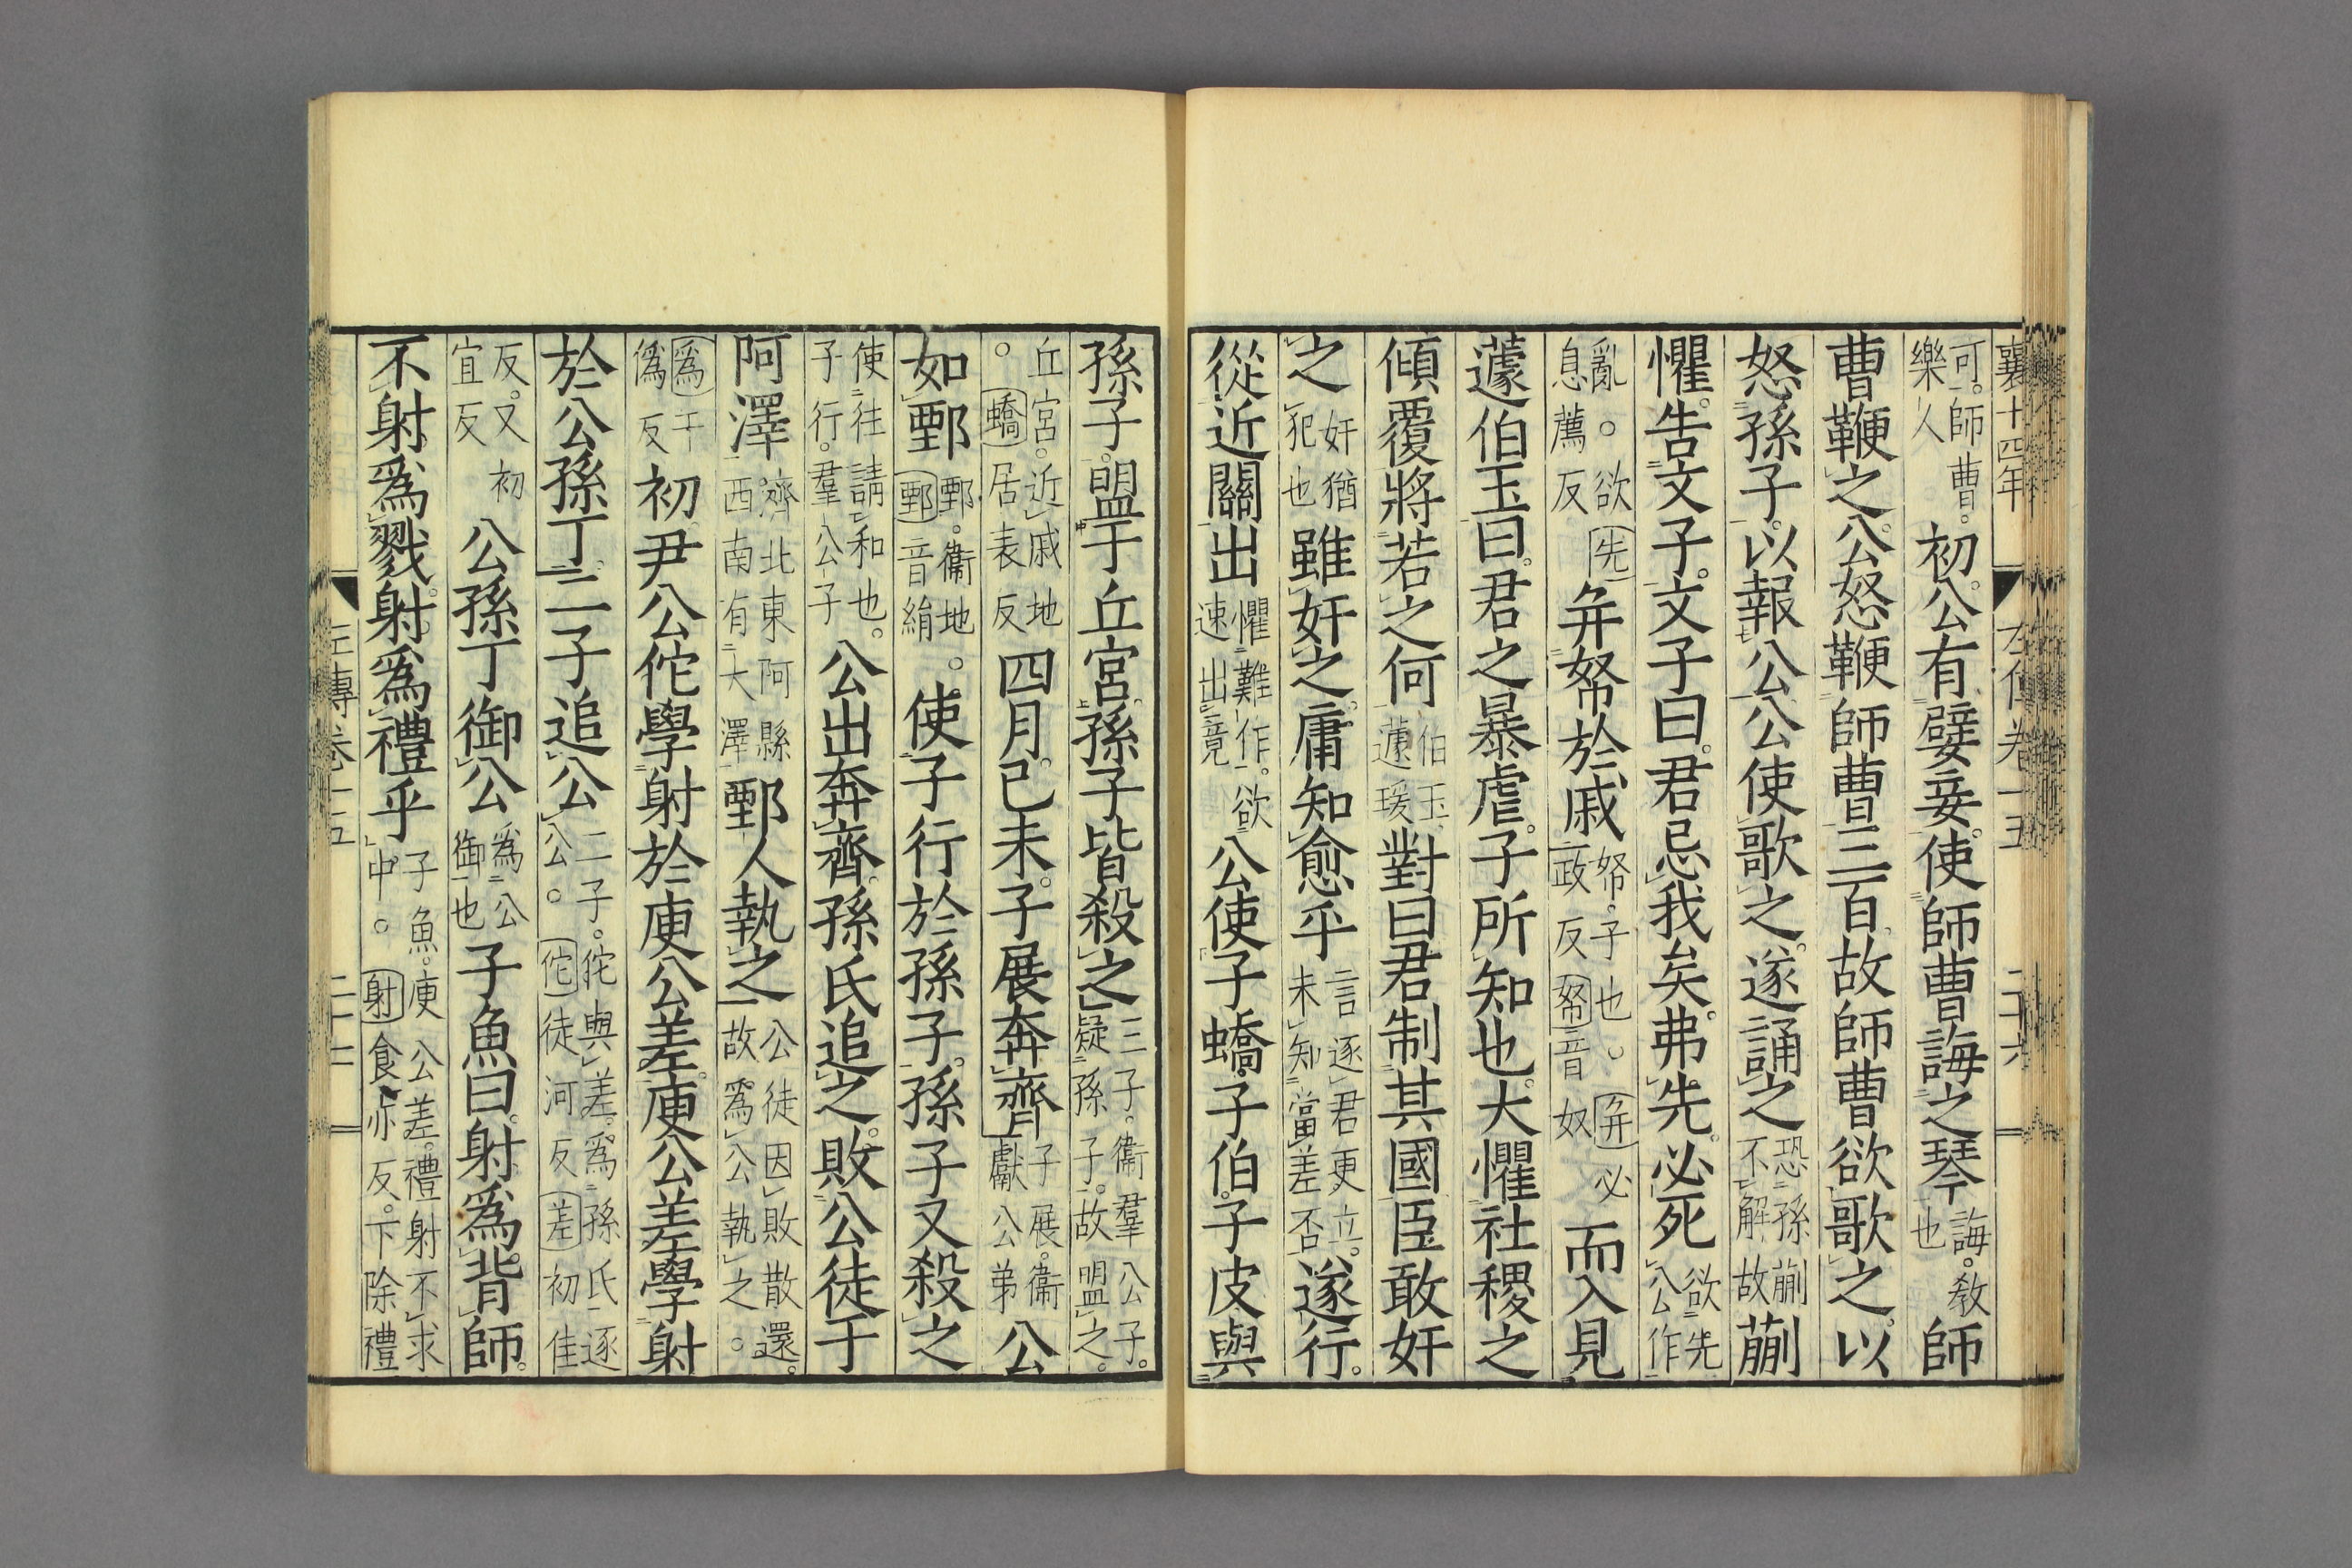 襄十四年
可。師曹。樂人初。公有嬖妾。使師曹誨之琴誨。教也師
曹鞭之。公怒鞭師曹三百。故師曹欲歌之。以
怒孫子。以報公。公使歌之。遂誦之恐孫蒯不解故蒯
懼。告文子。文子曰。君忌我矣。弗先。必死欲先公作
亂。○欲先息薦反幷帑於戚帑。子也。○幷必政反帑音奴而入見
蘧伯玉曰。君之暴虐。子所知也。大懼社稷之
傾覆。將若之何伯玉蘧瑗對曰君制其國臣敢奸
之奸猶犯也雖奸之。庸知愈乎言逐君更立。未知當差否遂行。
從近關出懼難作。欲速出竟公使子蟜。子伯。子皮與
孫子。盟于丘宮。孫子皆殺之三子。衞羣公子。疑孫子。故盟之。
丘宮。近戚地。○蟜居表反四月。己未。子展奔齊子展。衞獻公弟公
如鄄鄄。衞地。○鄄音絹使子行於孫子。孫子又殺之
使往請和也。子行。羣公子公出奔齊。孫氏追之。敗公徒于
阿澤濟北東阿縣西南有大澤鄄人執之公徒因敗散還。故爲公執之。○
爲于僞反初。尹公佗學射於庾公差。庾公差學射
於公孫丁。二子追公二子。佗與差。爲孫氏逐公。○佗徒河反差初佳
反。又初宜反公孫丁御公爲公御也子魚曰。射爲背師。
不射爲戮。射爲禮乎子魚。庾公差。禮射不求中。○射食亦反。下除禮